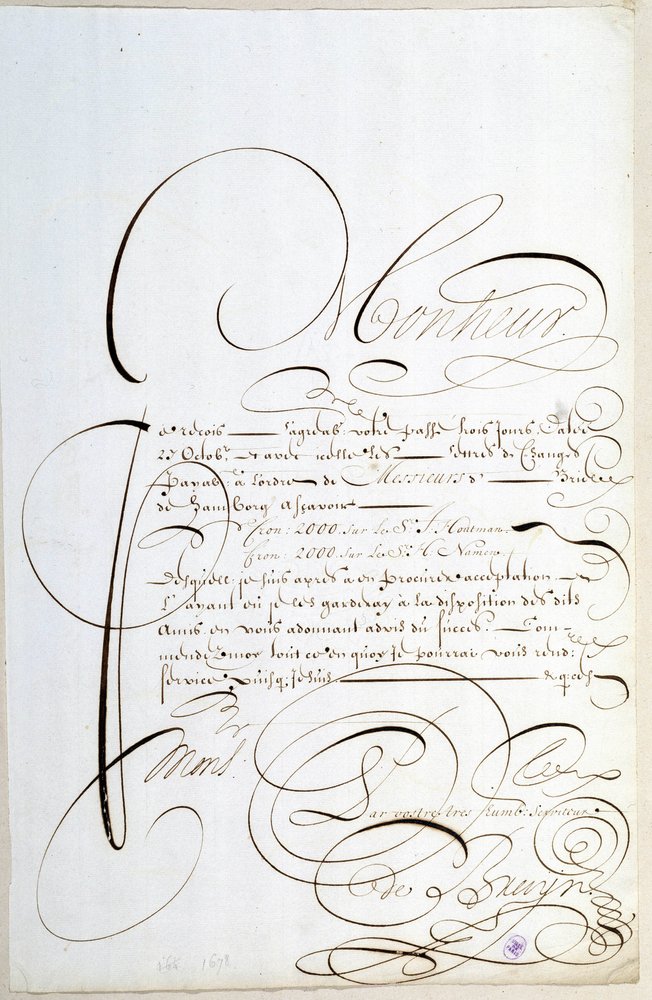 Monsieur.
Je reçois l'agreab: vôtre passé trois Jours, datée
27 Octobr. et avec icelle les lettres de Changes
Payab: à l'ordre de Messieurs
de Hamborg Asçavoir
Cron: 2000. sur Le Sr. J. Houtman.
Cron: 2000. sur Le Sr. H. Namen.
Desquell: je suis apres à en procurer acceptation. et
L'ayant eü je les garderay à la disposition des dits
Amis. en vous adonnant advis du succes. Com-
mendez moy tout ce en quoy Je pourrai vous rend:
service puisq: Je suis
Mons:
Par vostre tres humb: serviteur.
de Bruyn
1678